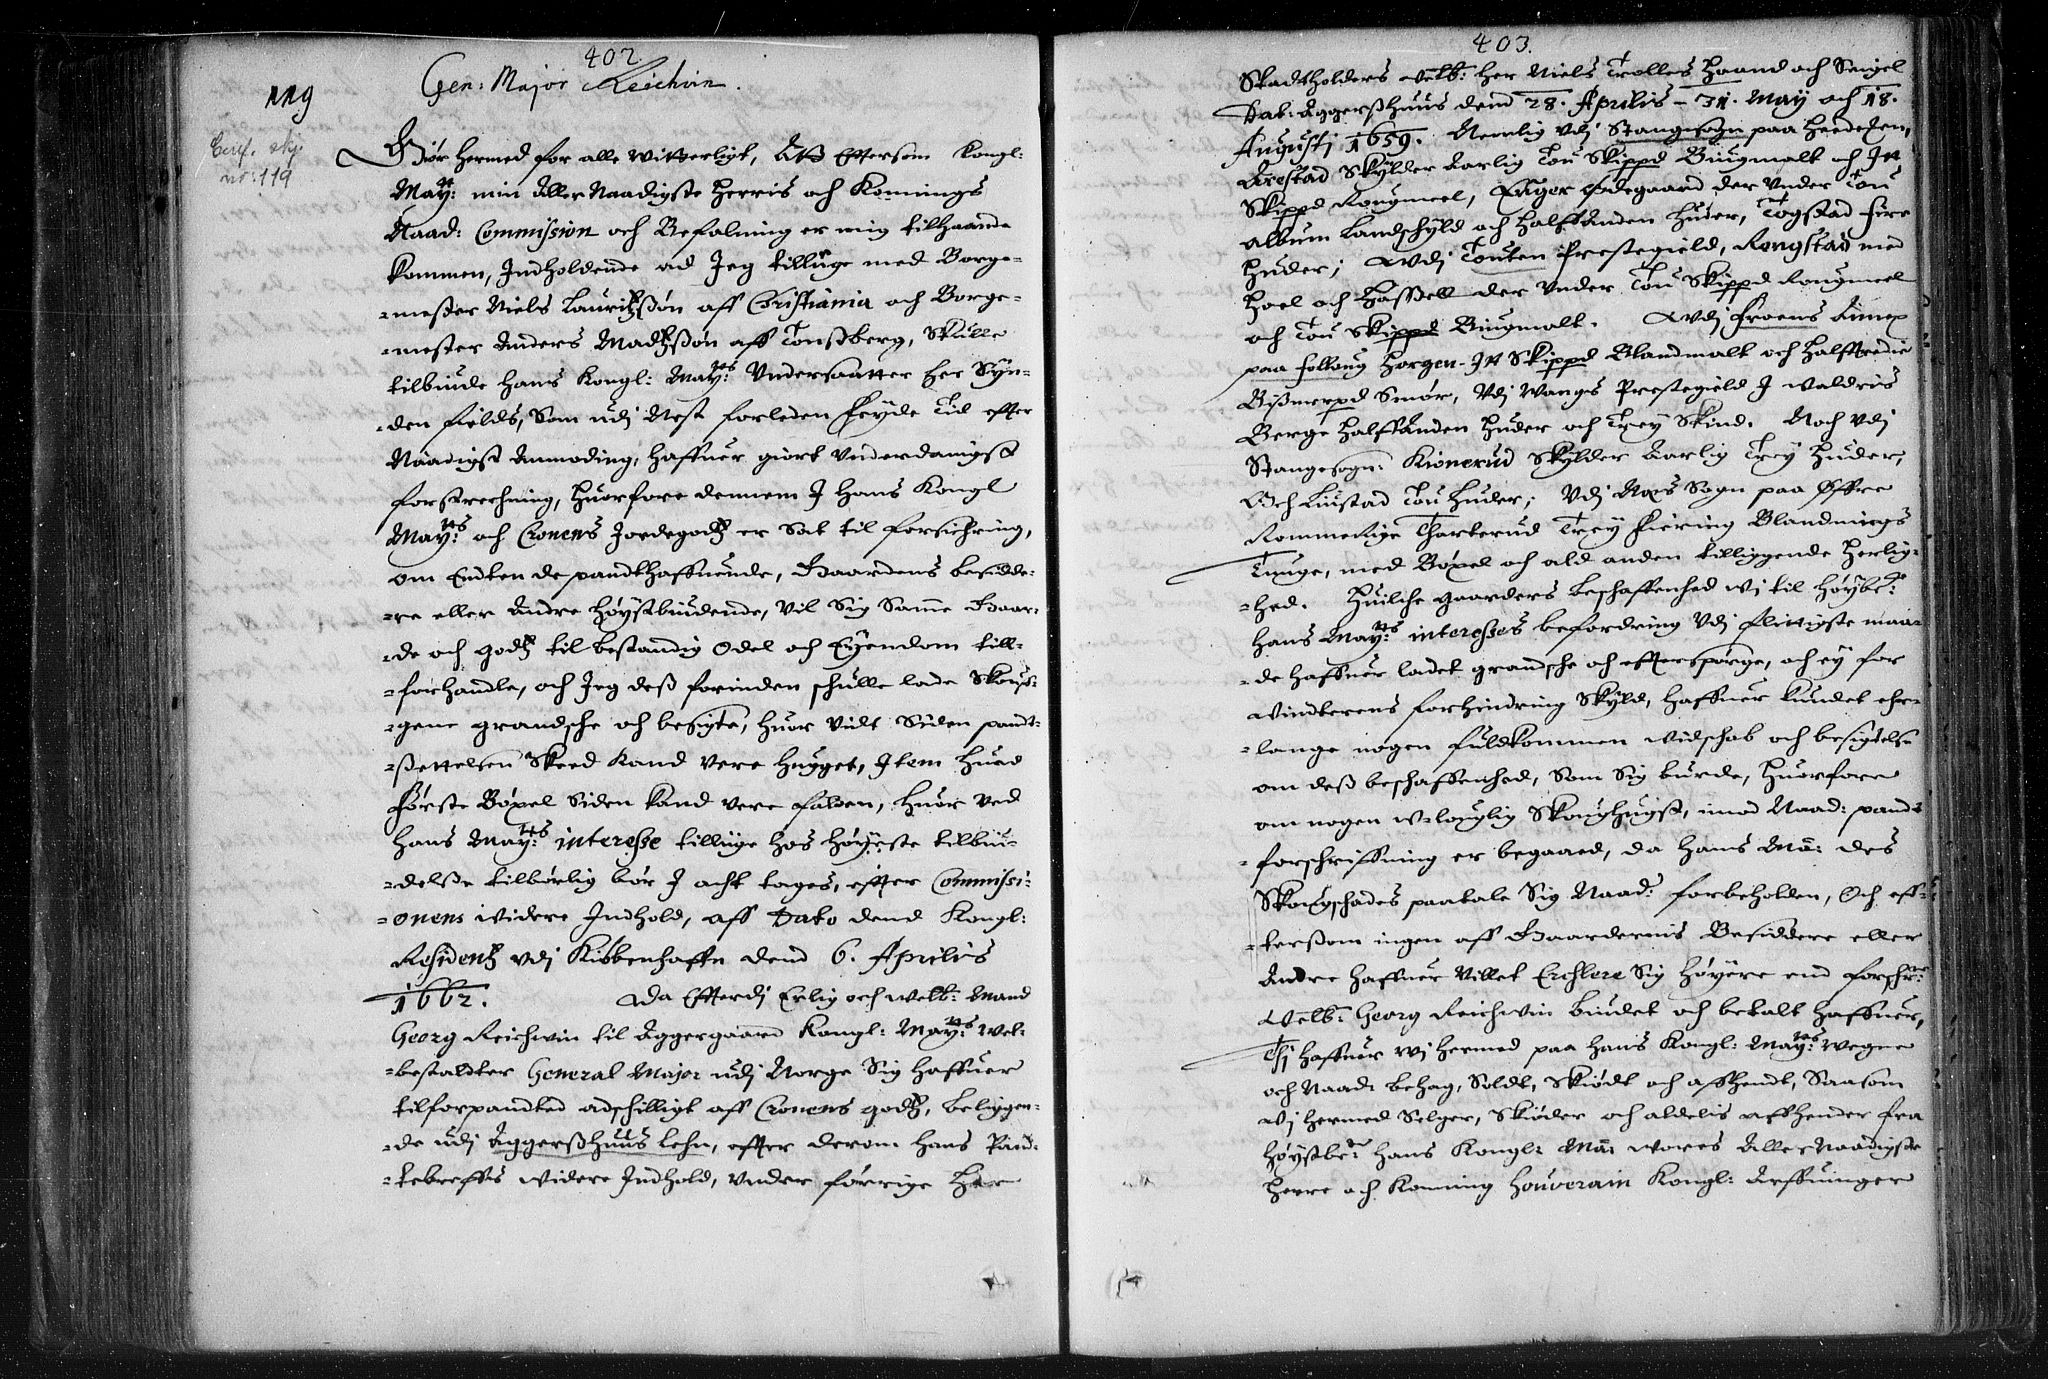 402.
Gen: Major Reichvin.
119
Conf. skj.
nr: 119
Giør hermed for alle witterligt, Att Eftersom Kongl:
Maytt: min Aller Naadigste Herris och Konnings
Naad: Commission och Befalning er mig tilhaande
kommen, Indholdende ad Jeg tillige med Borge-
-mester Niels Lauritzsøn aff Christiania och Borge-
-mester Anders Madtzsøn aff Tonsberg, Skulle
tilbiude Hans Kongl: Maytts: Undersaatter her Syn-
-den fields, Som udj Nest forleden feyde Tid efter
Naadigst Anmoding, haffuer giort Underdanigst
forstrechning, Huorfore dennem J Hans Kongl
Maytts: och Cronens Jordegodtz er Sat til forsichring,
om Endten de pandthaffuende, Gaardens besidde-
-re eller Andre høystbiudende, vil Sig Samme Gaar-
-de och godtz til bestandig Odel och Eyendom till-
-forhandle, och Jeg deß forinden schulle lade Skouf-
-gene grandsche och besigte, huor vidt Siden pandt-
-settelsen Skeed Kand vere hugget, Item huad
Første Bøxel Siden kand vere falden, huor ved
Hans Maytts: interesse tillige hos høyeste tilbiu-
-delße tilbørlig bør J acht tages, efter Commissi-
-onens widere Indhold, aff Dato dend Kongl:
Residentz udj Kiøbenhaffn dend 6. Aprilis
1662. Da Efterdj Erlig och welb: Mand
Georg Reichwin til Aggergaard Kongl: Maytts: wel-
-bestaldter General Major udj Norge Sig haffuer
tilforpandted adschilligt aff Cronens godtz, beliggen-
-de udj Aggerßhuus Lehn, efter derom hans Pan-
-tebreffs widere Indhold, under forrige Her
403.
Stadtholders welb: Her Niels Trolles Haand och Seigel
Dat: Aggerßhuus dend 28. Aprilis - 31. May och 18.
Augustj 1659. Nemlig udj Stangesogn paa Hedeken,
Arestad Skylder Aarlig Tou Skippd Biugmalt och Jtt
Skippd Rougmeel, Ager Ødegaard der under Tou
album Landschyld och halfanden Huder, Togstad fire
Huder; Udj Touten Prestegield, Rongstad med
Hoel och Hassell der under Tou Skippd Rougmeel
och Tou Skippd Biugmalt. Udj Froens Annex
paa follaug Horgen - Jtt Skippd Blandmalt och halftredie
Bißmerpd Smør, Udj Wangs Prestegield J Waldris
Berge halffanden Huder och Trey Skind. Noch udj
Stangesogn: Kionerud Skylder Aarlig Trey Huder,
Och Liustad Tou Huder; Udj Næs Sogn paa Øffre
Rommerige Tharterud Trey fiering Blandmings
Tunge, med Bøxel och ald anden tilliggende herlig-
-hed. Huilche gaarders beschaffenhed wj til høybete:
Hans Maytts: interesses befordring udj flittigste maa-
-de haffuer ladet grandsche och efterspørge, och ey for
windterens forhindring Skyld, haffuer kundet ehr-
-lange nogen fuldkommen widschab och besigtelse
om deß beschaffenhed, Som Sig burde, Huorfore
om nogen u-louglig Skoughugst, imod Naad: pandt
-forschriffning er begaaed, da Hans Ma: des
Skougschades paatale Sig Naad: forbeholden, Och ef-
-terßom ingen aff Gaardernis Besiddere eller
Andre haffuer Villet Erchlere Sig høyere end forschr:
Welb: Georg Reichwin biudet och betalt haffuer,
Thj haffuer wj hermed paa Hans Kongl: Maytts: Wegne
och Naad: behag, Soldt, Skiødt och affhendt, Saasom
wj hermed Selger, Skiøder och aldelis affhender fra
høystbete: Hans Kongl: Ma: wores Aller Naadigste
Herre och Konning Souverain Kongl: Arffuinger